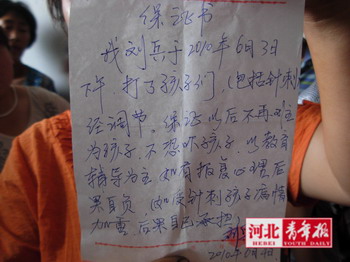 保证书
我刘兵于2010年6月3日
下午 打了孩子们，（包括针刺
经调节。保证以后不再难
为孩子，不恐吓孩子，以教育
辅导为主 如有报复心理后
果自负（如被针刺孩子病情
加重 后果自己承担）
河北青年报
HEBEI YOUTH DAILY
2010